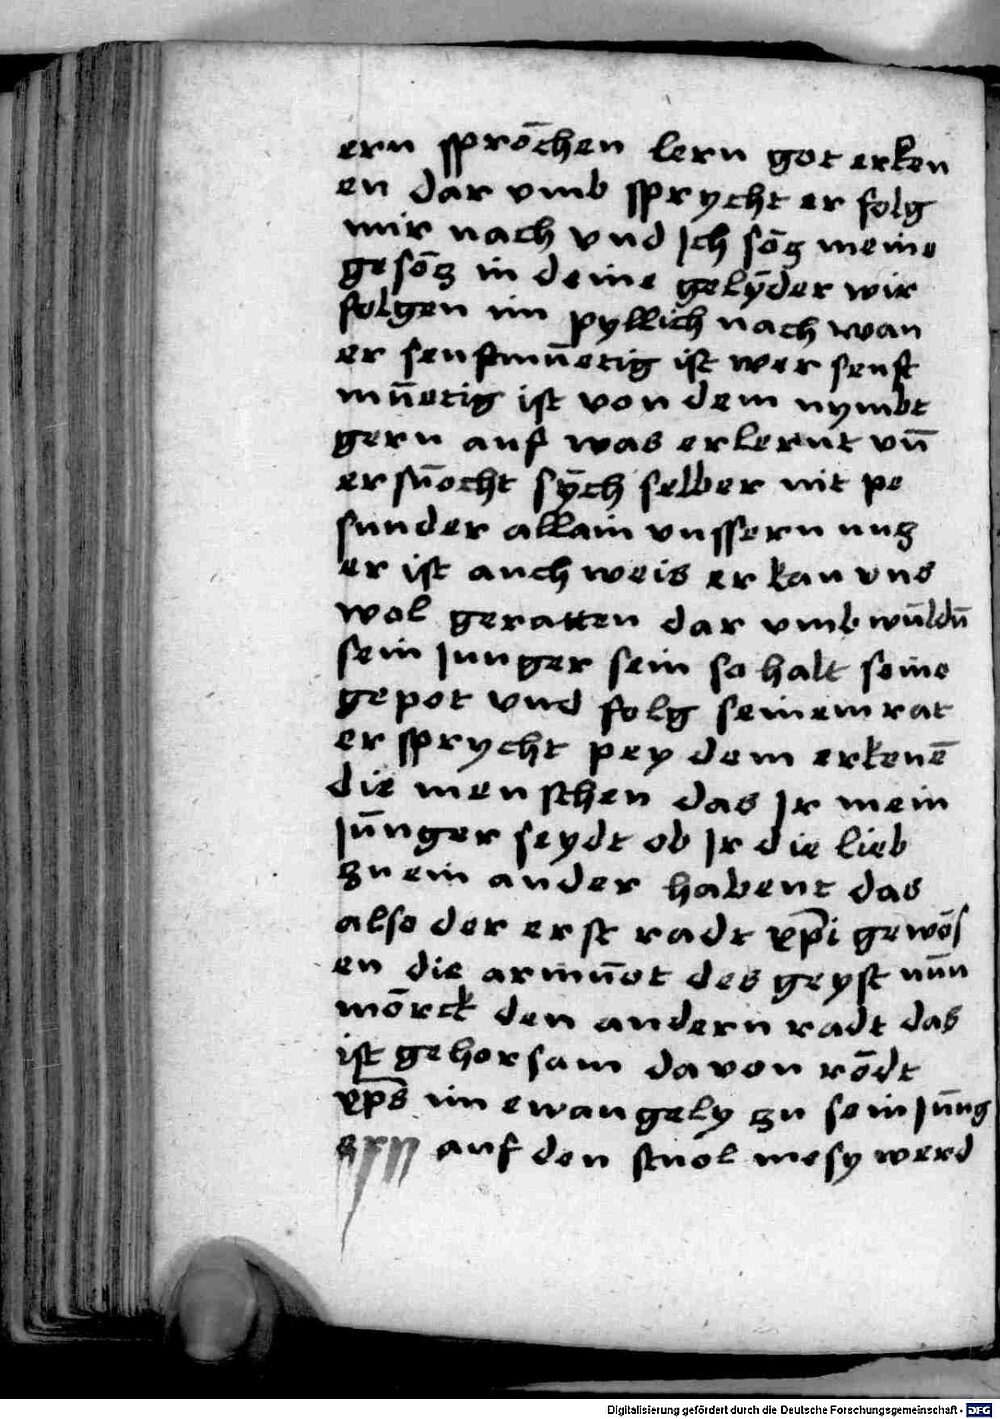 ern sprōchen lern got erken
en dar vmb sprycht er folg
mir nach vnd jch sōcz meine
gesōcz in deine gelȳder wir
folgen im pyllich nach wan
er senftmūetig ist wer senft
mūetig ist von dem nymbt
gern auf was er lernt vn̄
er sūocht sȳch selber nit pe
sunder allain vnssern nucz
er ist auch weis er kan vns
wol geratten dar vmb wūldū
sein junger sein so halt seine
gepot vnd folg seinem rat
er sprycht pey dem erkenē
die menschen das jr mein
jūnger seydt ob jr die lieb
zu ein ander habent das
also der erst radt xp̄i gewōs
en die armūet des geyst nūn
mōrck den andern radt das
ist gehorsam da von rōdt
xp̄s im ewangely zu sein jūng
ern auf den stuol mosy werd
Digitalisierung gefördert durch die Deutsche Forschungsgemeinschaft - DFG